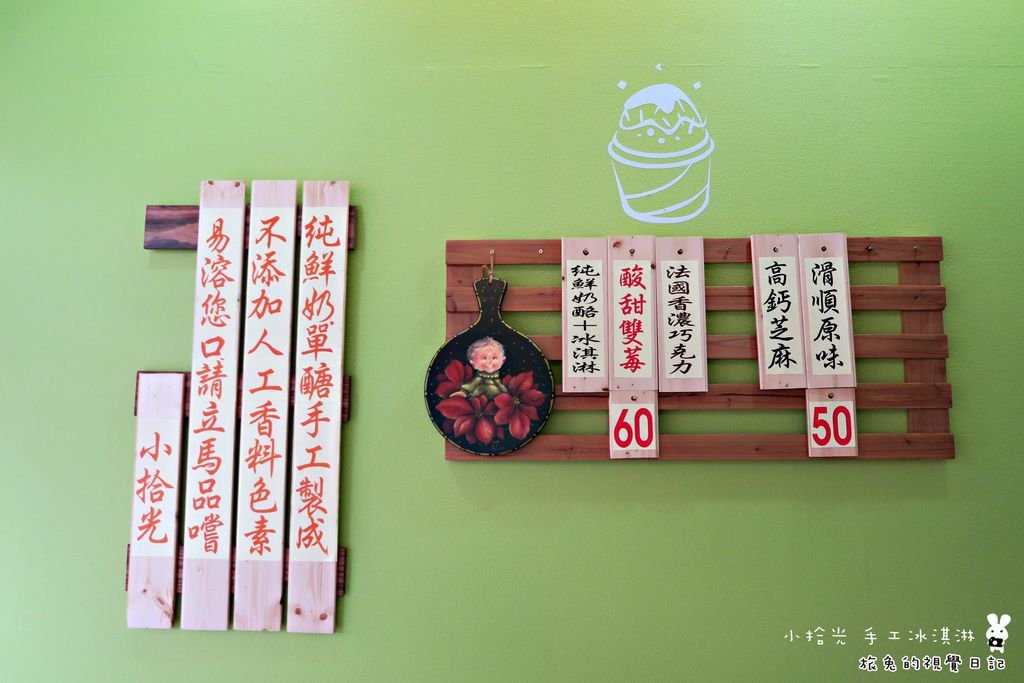 純鮮奶單醣手工製成
不添加人工香料色素
易溶您口請立馬品嚐
小拾光
滑順原味
高鈣芝麻
50
法國香濃巧克力
酸甜雙莓
純鮮奶酪十冰淇淋
60
小拾光 手工冰淇淋
旅兔的視覺日記